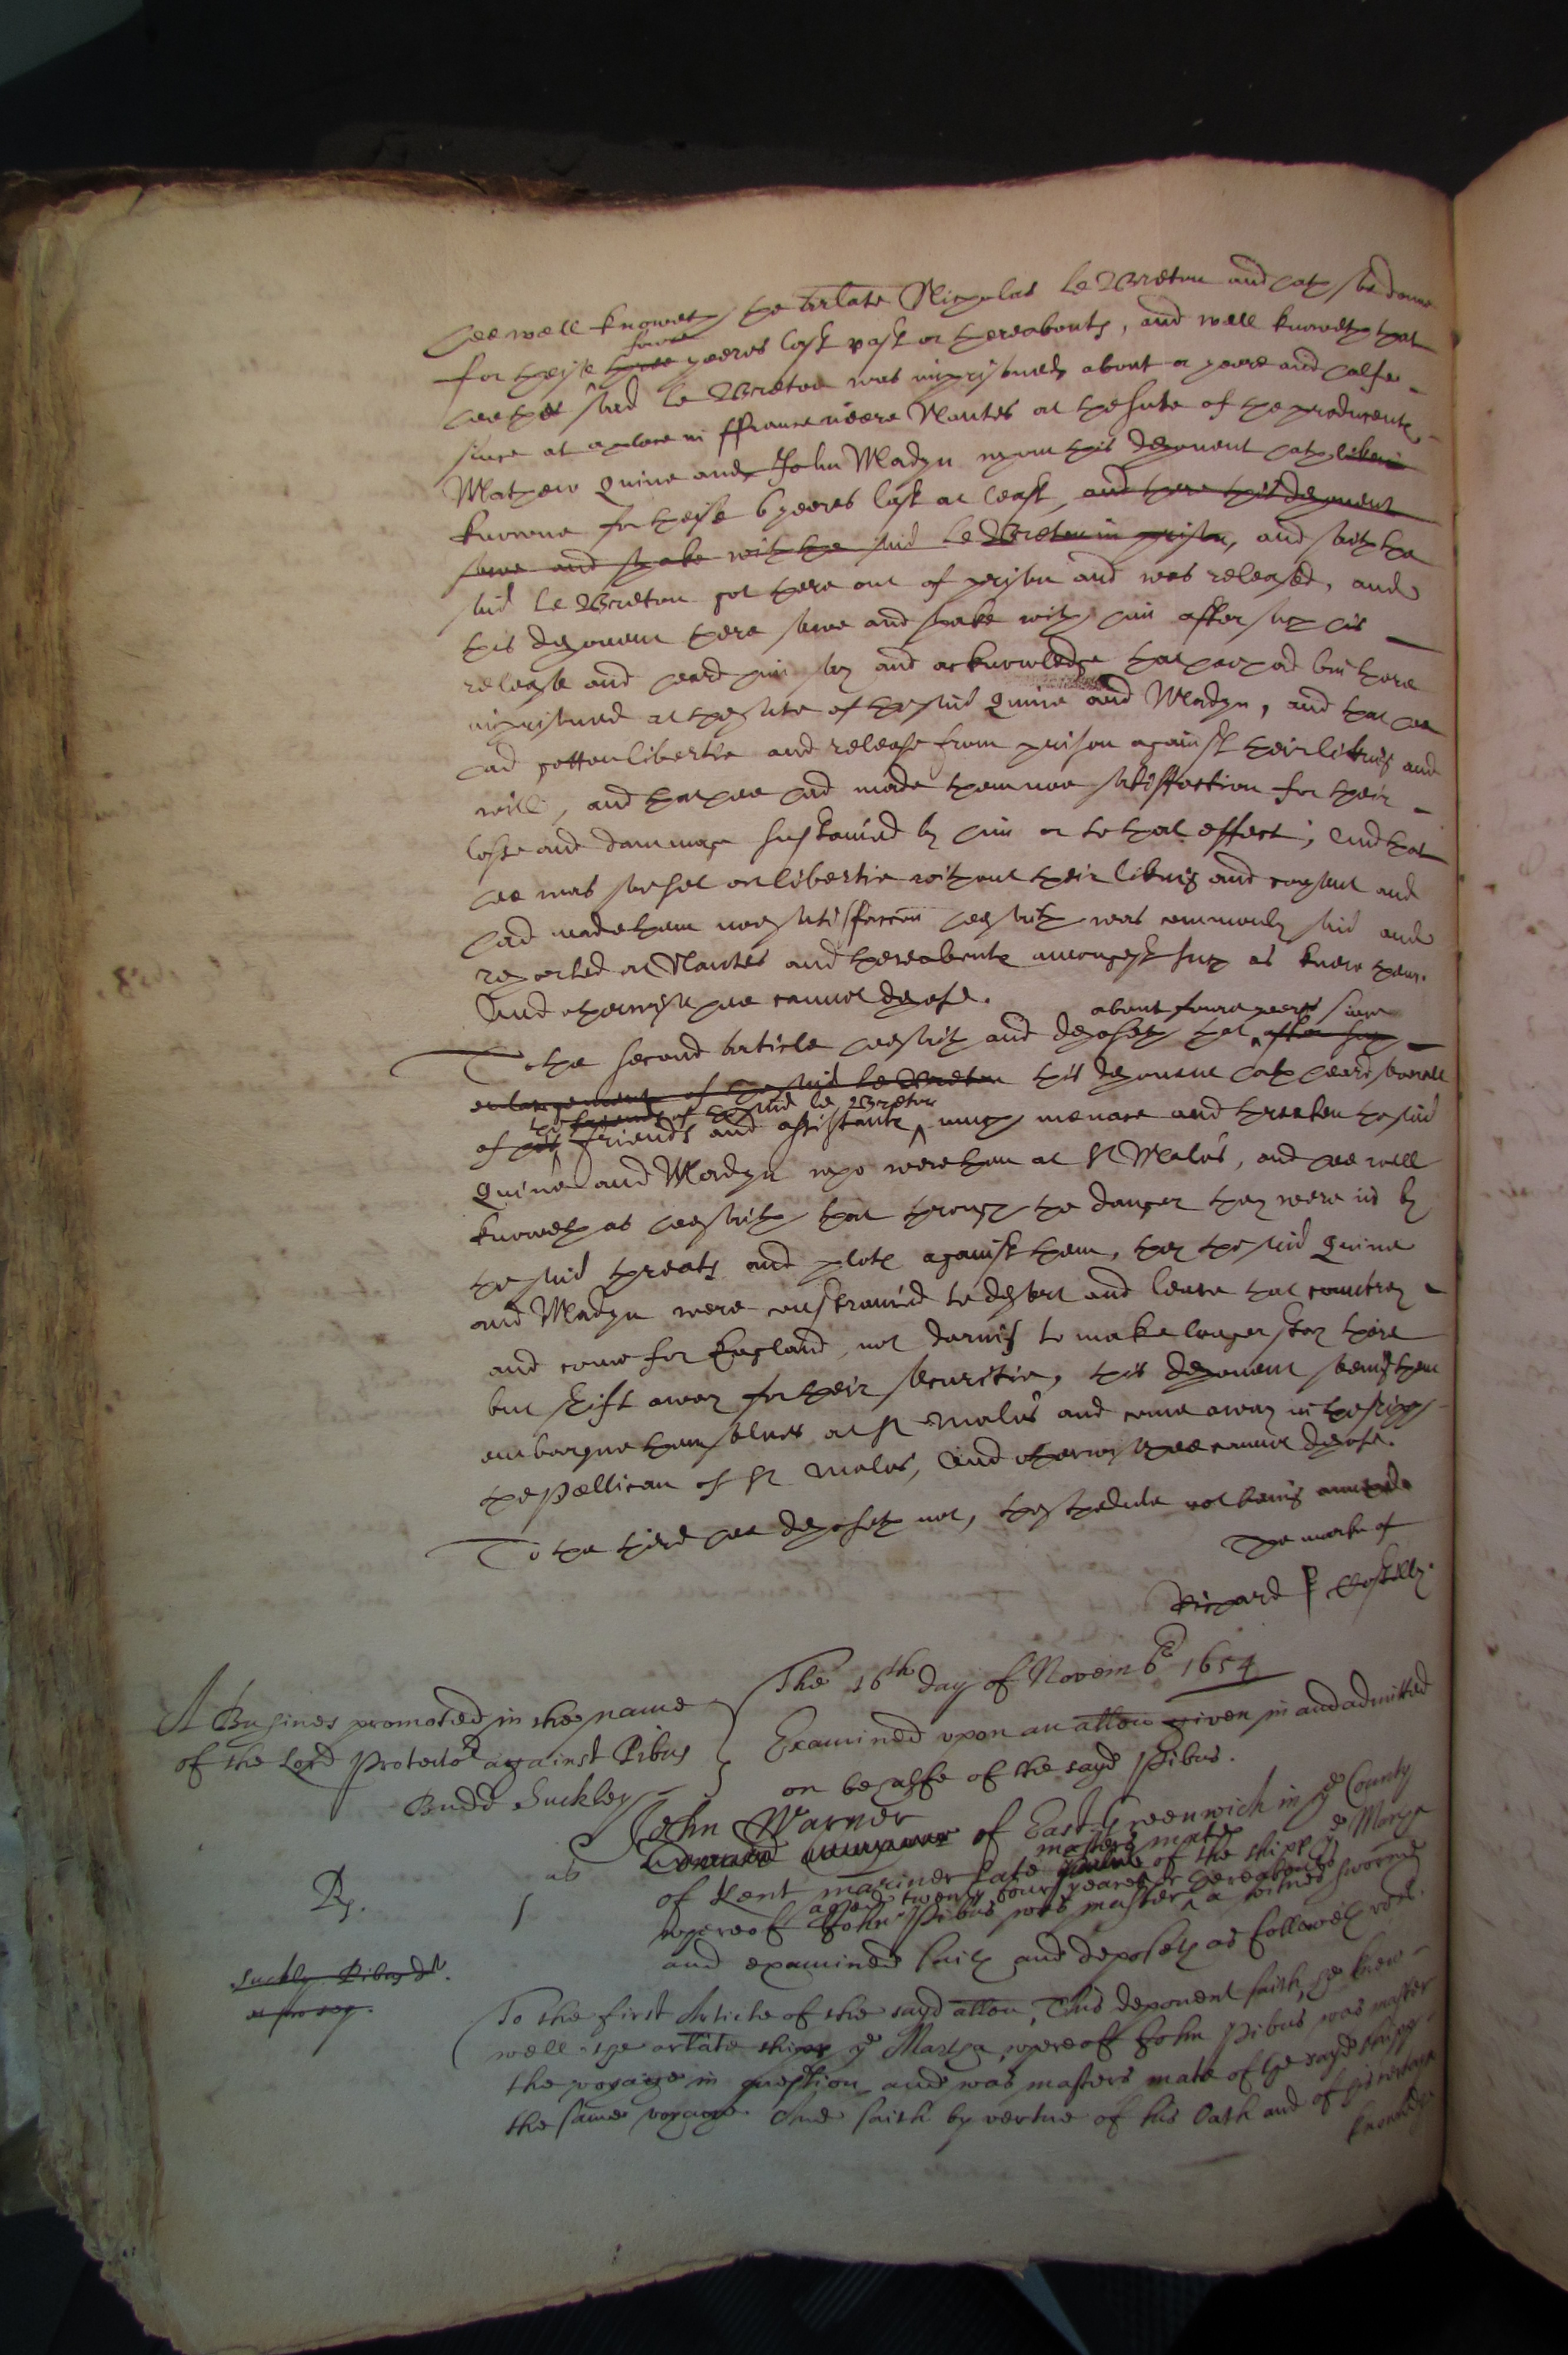 hee well knoweth the arlate Nicholas le Breton and hath soe done
for theise three foure yeeres last past or thereabouts, and well knoweth that
hee the said le Breton was imprisoned about a yeare and halfe
since at a place in ffrance neere Nantes at the suite of the producents
Mathew Quine and John Madyn whom this deponent hath likewise
knowne for theise 6 yeeres last at least, and there this deponent
sawe and spake with the said le Breton in prison, and saith the
said le Breton got there out of prison and was released, and
this deponent there sawe and spake with him after such his
release and heard him say and acknowledge that hee had bin there
imprisoned at the suite of the said Quine and Madyn, and that hee
had gotten libertie and release from prison against their liking and
will, and that hee had made them noe satisfaction for their
losse and dammage sustained by him or to that effect, And that
hee was soe set at libertie without their liking and consent and
had made them noe satisfaccon hee saith was commonly said and
reported at Nantes and thereabouts amongest such as knew them.
And otherwise hee cannot depose.
To the second article hee saith and deposeth that about foure yeeres since after such
enlargement of the said le Breton this deponent hath heard severall
of his the friends of the said le Breton friends and assistants much menace and threaten the said
Quine and Madyn who were then at St Malo's, and hee well
knoweth as hee saith that through the danger they were in by
the said threats and plots against them, they the said Quine
and Madyn were constrained to desert and leave that countrey
and come for England, not daring to make longer stay there
but shift away for their securitie, this deponent seeing them
embarque themselves at St Malo's and come away in the shipp
the Pellican of St Malos, And otherwise hee cannot depose.
To the third hee deposeth not, the schedule not being annexed.
The marke of
Richard P Costilly.
The 16th day of Novemb 1654
A Busines promoted in the name
of the Lord Protector against Pibus
Budd Suckley
Examined upon an allon given in and admitted
on behalfe of the sayd Pibus.
John Warner
of East Greenwich in ye County
of Kent mariner late masters mate of the shipp ye Martha
whereof John Pibus was master aged twenty four yeares or thereabouts a witnes sworne
and examined saith and deposeth as followeth vizt.
Rp.
1
Suckley Pibus dt.
To the first Article of the sayd allon, This deponent saith, he knew
well the arlate shipp ye Martha whereoff John Pibus was master
the voyage in question and was masters mate of the sayd shipp
the same voyage. And saith by vertue of his Oath and of his certaine
knowledge